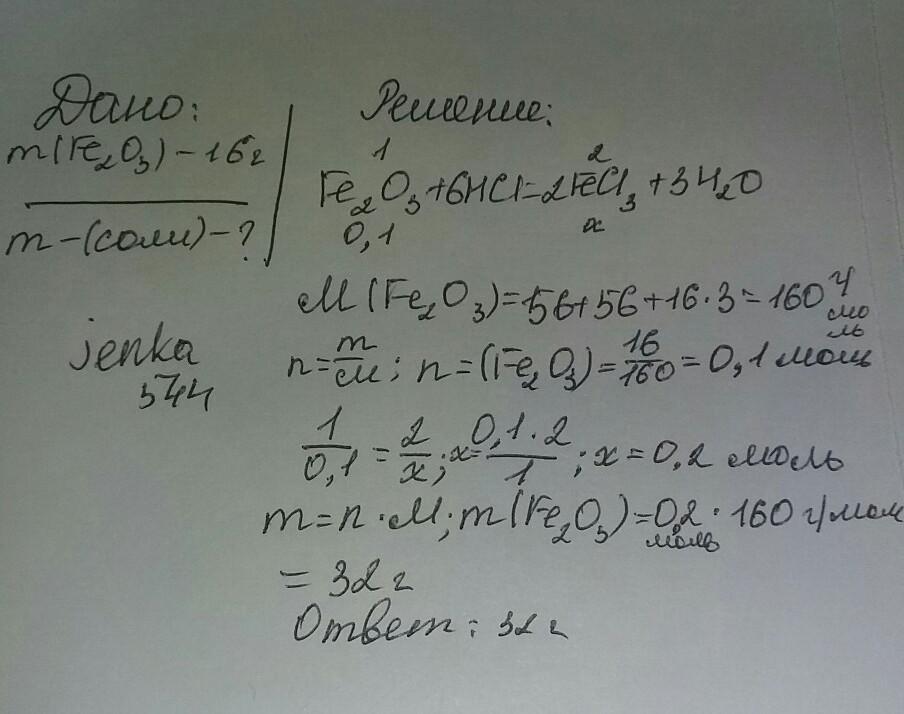 Дано:
m(Fe₂O₃) - 16г
m - (соли) - ?
jenka
544
Решение:
1 2
Fe₂O₃ + 6HCl = 2FeCl₃ + 3H₂O
0,1 x
M(Fe₂O₃) = 56 + 56 + 16 · 3 = 160 г/моль
n = m/M; n = (Fe₂O₃) = 16/160 = 0,1 моль
1/0,1 = 2/x; x = 0,1 · 2/1; x = 0,2 моль
m = n · M; m(Fe₂O₃) = 0,2 моль · 160 г/мол
= 32 г
Ответ: 32 г